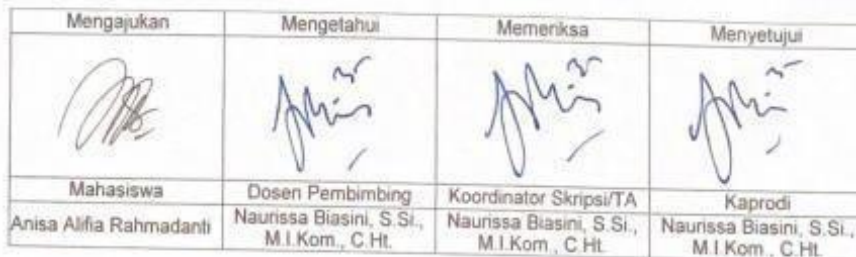 Mengajukan Mengetahui Memeriksa Menyetujui
Mahasiswa Dosen Pembimbing Koordinator Skripsi/TA Kaprodi
Anisa Alifia Rahmadanti Naurissa Biasini, S.Si., Naurissa Biasini, S.Si., Naurissa Biasini, S.Si.,
M.I.Kom., C.Ht. M.I.Kom., C.Ht. M.I.Kom., C.Ht.